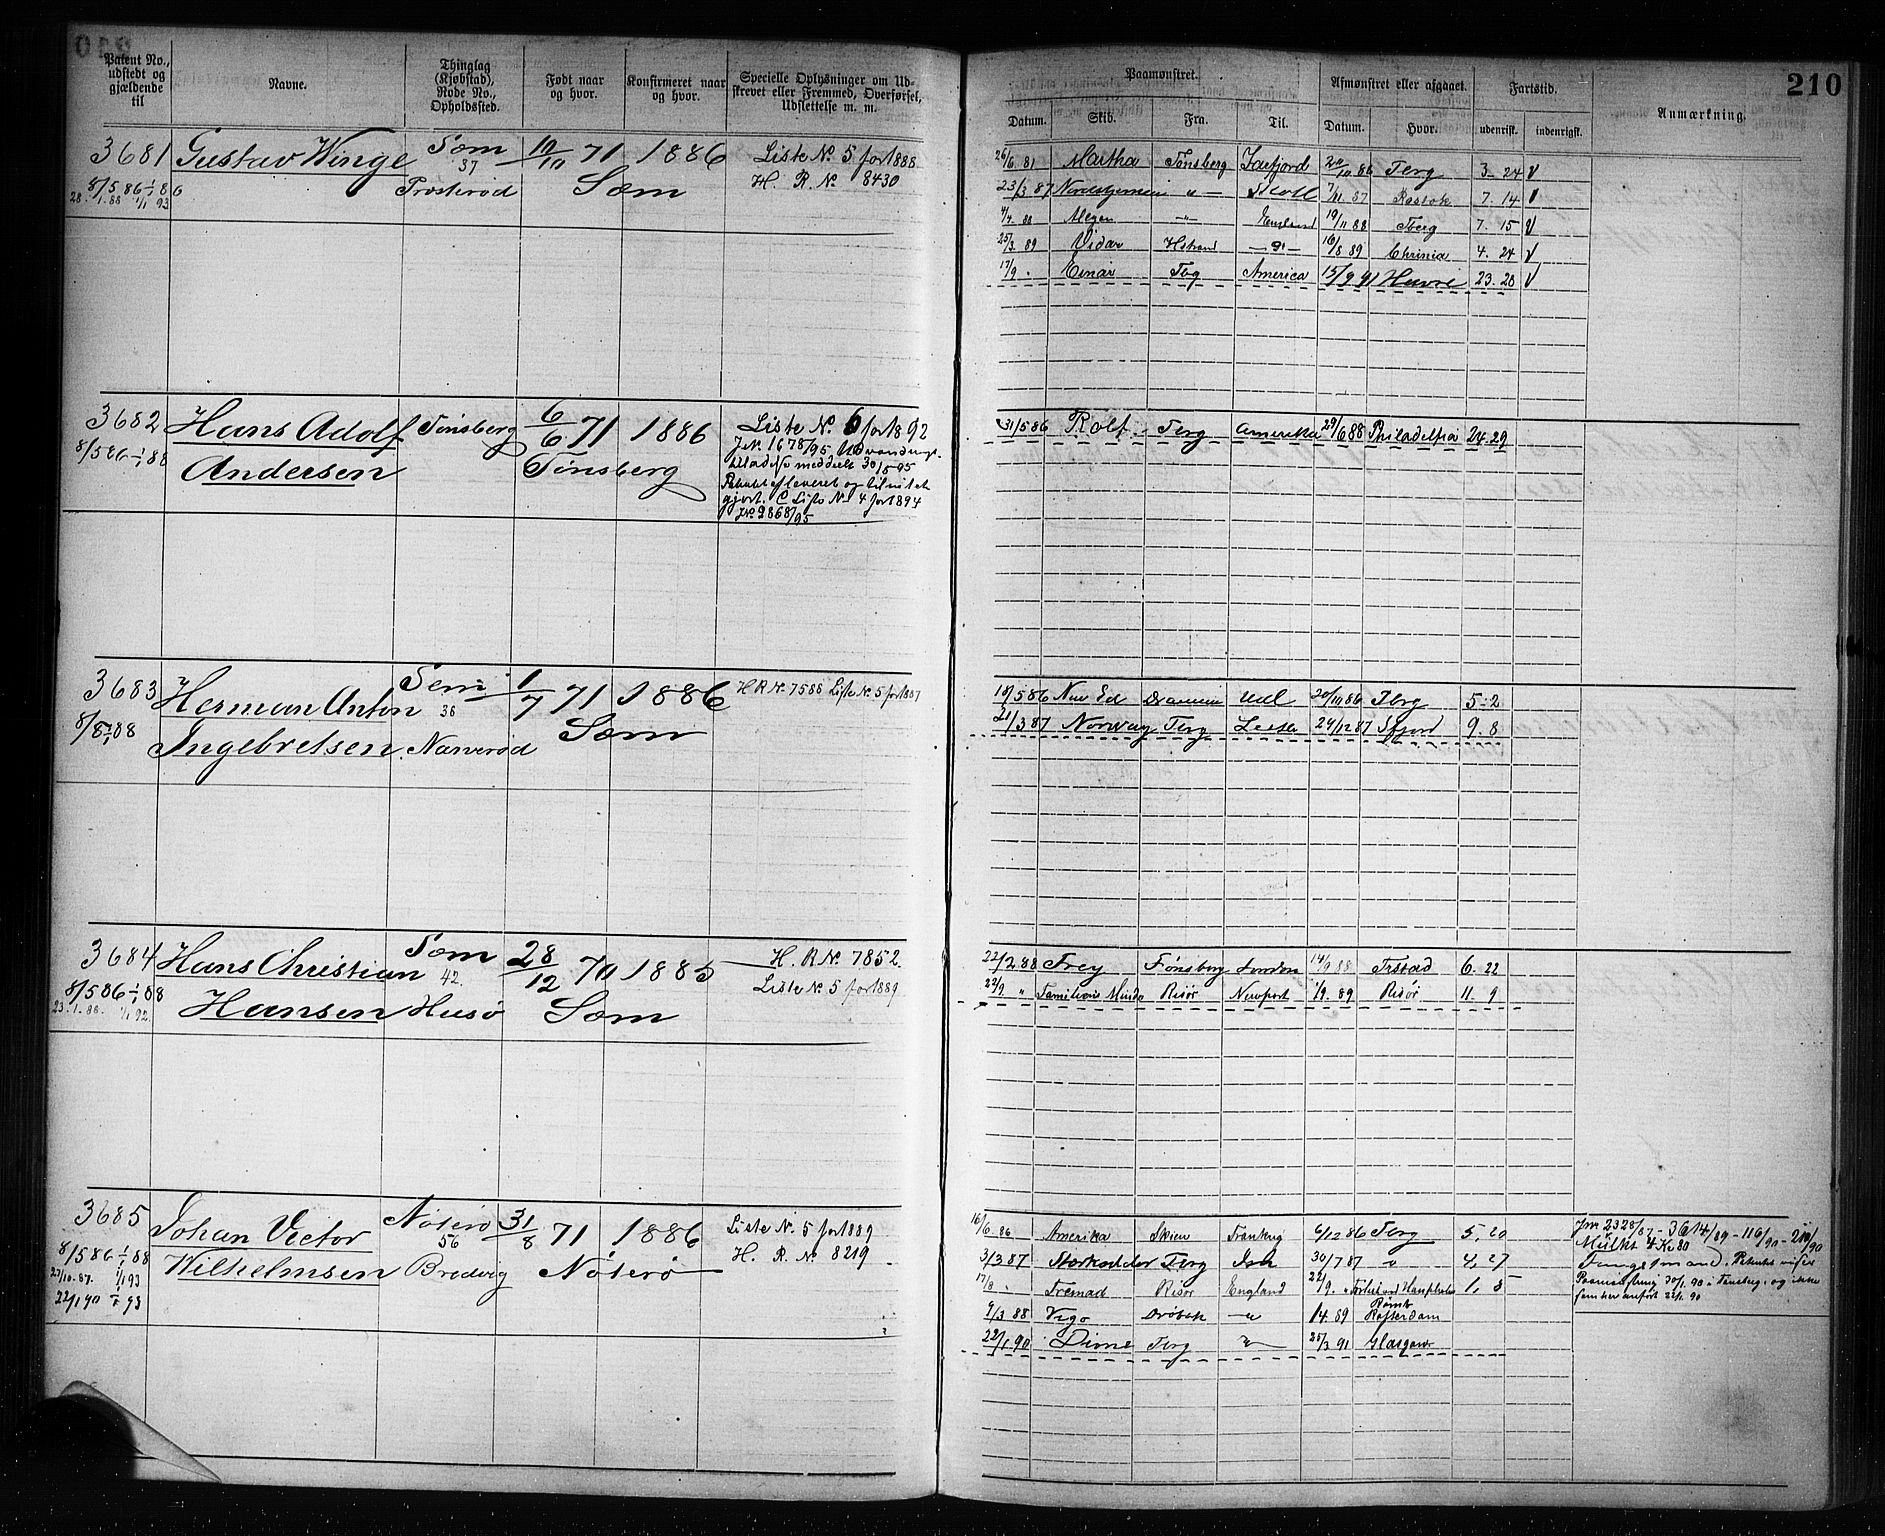 210
Patent No., udstedt og gjældende til
Navne.
Thinglag (Kjøbstad), Rode No., Opholdssted.
Født naar og hvor.
Konfirmeret naar og hvor.
Specielle Oplysninger om Udskrevet eller Fremmed, Overførsel, Udslettelse m. m.
Paamønstret.
Afmønstret eller afgaaet.
Fartstid.
Anmærkning.
Datum.
Skib.
Fra.
Til.
Datum.
Hvor.
udenrigsk.
indenrigsk.
3681 Gustav Winge Sæm 10/10 71 1886 Liste No. 5 for 1888
37
8/5 86 1/1 86 Træskerød Sæm H. R. No 8430
28/1.88 1/1 93
Martha Tønsberg 86 Tbrg 3. 24 V
23/3 87 7/11 87 7. 14 V
88 England 19/11 88 Tberg 7. 15 V
25/3. 89 Vidar Hstrand 16/8 89 Chrinia 4. 24 V
17/9 . Einar Tbg America 15/9 91 Havre 23. 28 V
3682 Hans Adolf Tønsberg 6/6 71 1886 Liste No. 6 for 1892
8/5 86 1/1 88 Andersen Tønsberg
J.N. 1678/95. Udvandrings-
tilladelse meddelt 30/5 95
gjort. C Liste No. 4 for 1894
J.No 2868/95
31/5 86 Rolf Tbrg Amerika 29/6 88 Philadelfia 24. 29
3683 Herman Anton Sem 1/7 71 1886 H R No. 7588 Liste No. 5 for 1887
36
Ingebretsen Narverød Sæm
18/5 86 New Ed Drammen Udl 20/10 86 Tbrg 5. 2
21/3 87 Norway Tbrg Leith 24/12 87 Sfjord 9. 8
3684 Hans Christian Sæm 28/12 70 1885 H. R No. 7852.
42.
8/5 86 1/1 88 Hansen Husø Sæm Liste No. 5 for 1889
23/1.88. 1/1 92.
22/2 88 Frey Tønsberg London 14/9 88 Frstad 6. 22
22/9. " Familiens Minde Risør Newport 1/9. 89 Risør 11. 9
3685 Johan Victor Nøterø 31/8 71 1886 Liste No. 5 for 1889
56
8/5 86 1/1 88 Wilhelmsen Bredvig Nøterø H. R. No 8219
27/10.87. 1/1 93
22/1 90 1/1 93
16/6. 86 Amerika Skien Frankrg 6/12 86 Tbrg 5, 20
3/3 87 Storkodder Tbrg Ish 30/7 87 " 4, 27
17/8 . Fremad Risør England 22/9. 1, 5
9/3 88 Vigo Drøbak " 1/4. 89 Rotterdam
22/1. 90 Dione Tbrg " 25/3 91 Glasgow
Mulkt 4 Kr 80
Paamønstring 30/1. 90 i Tønsberg, og ikke
som her anført 22/1. 90